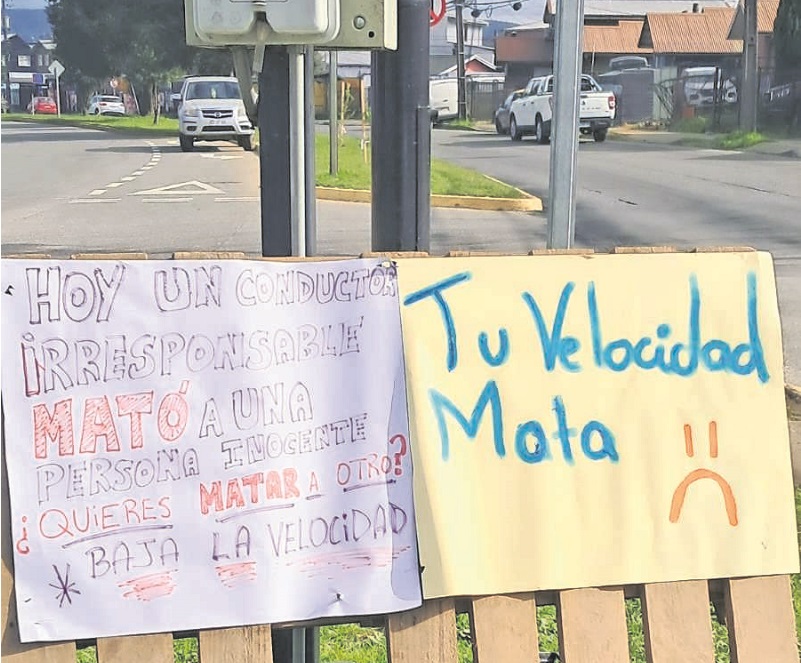 HOY UN CONDUCTOR
iRRESPONSABLE
MATÓ A UNA
PERSONA INOCENTE
¿QUiERES MATAR A OTRO?
* BAJA LA VELOCiDAD
Tu Velocidad
Mata